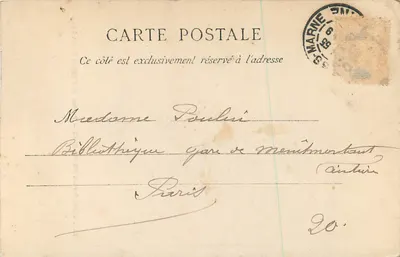 CARTE POSTALE
Ce côté est exclusivement réservé à l'adresse
MARNE
Madame Poulin
Bibliothèque gare de Menilmontant
Ceinture
Paris
20.